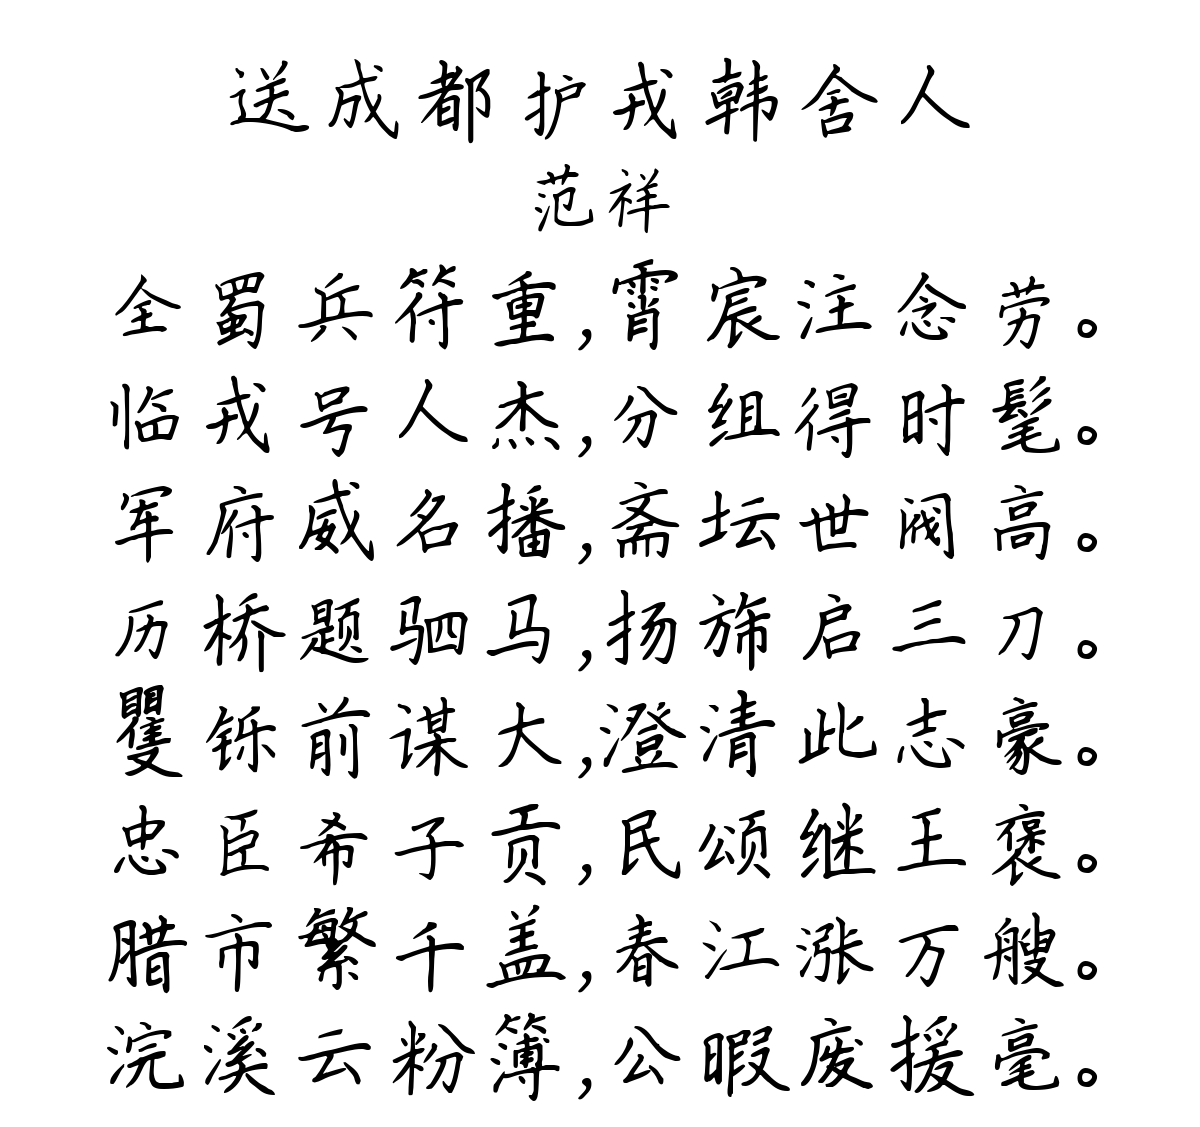 送成都护戎韩舍人
范祥
全蜀兵符重,霄宸注念劳。
临戎号人杰,分组得时髦。
军府威名播,斋坛世阀高。
历桥题驷马,扬旆启三刀。
矍铄前谋大,澄清此志豪。
忠臣希子贡,民颂继王褒。
腊市繁千盖,春江涨万艘。
浣溪云粉簿,公暇废援毫。